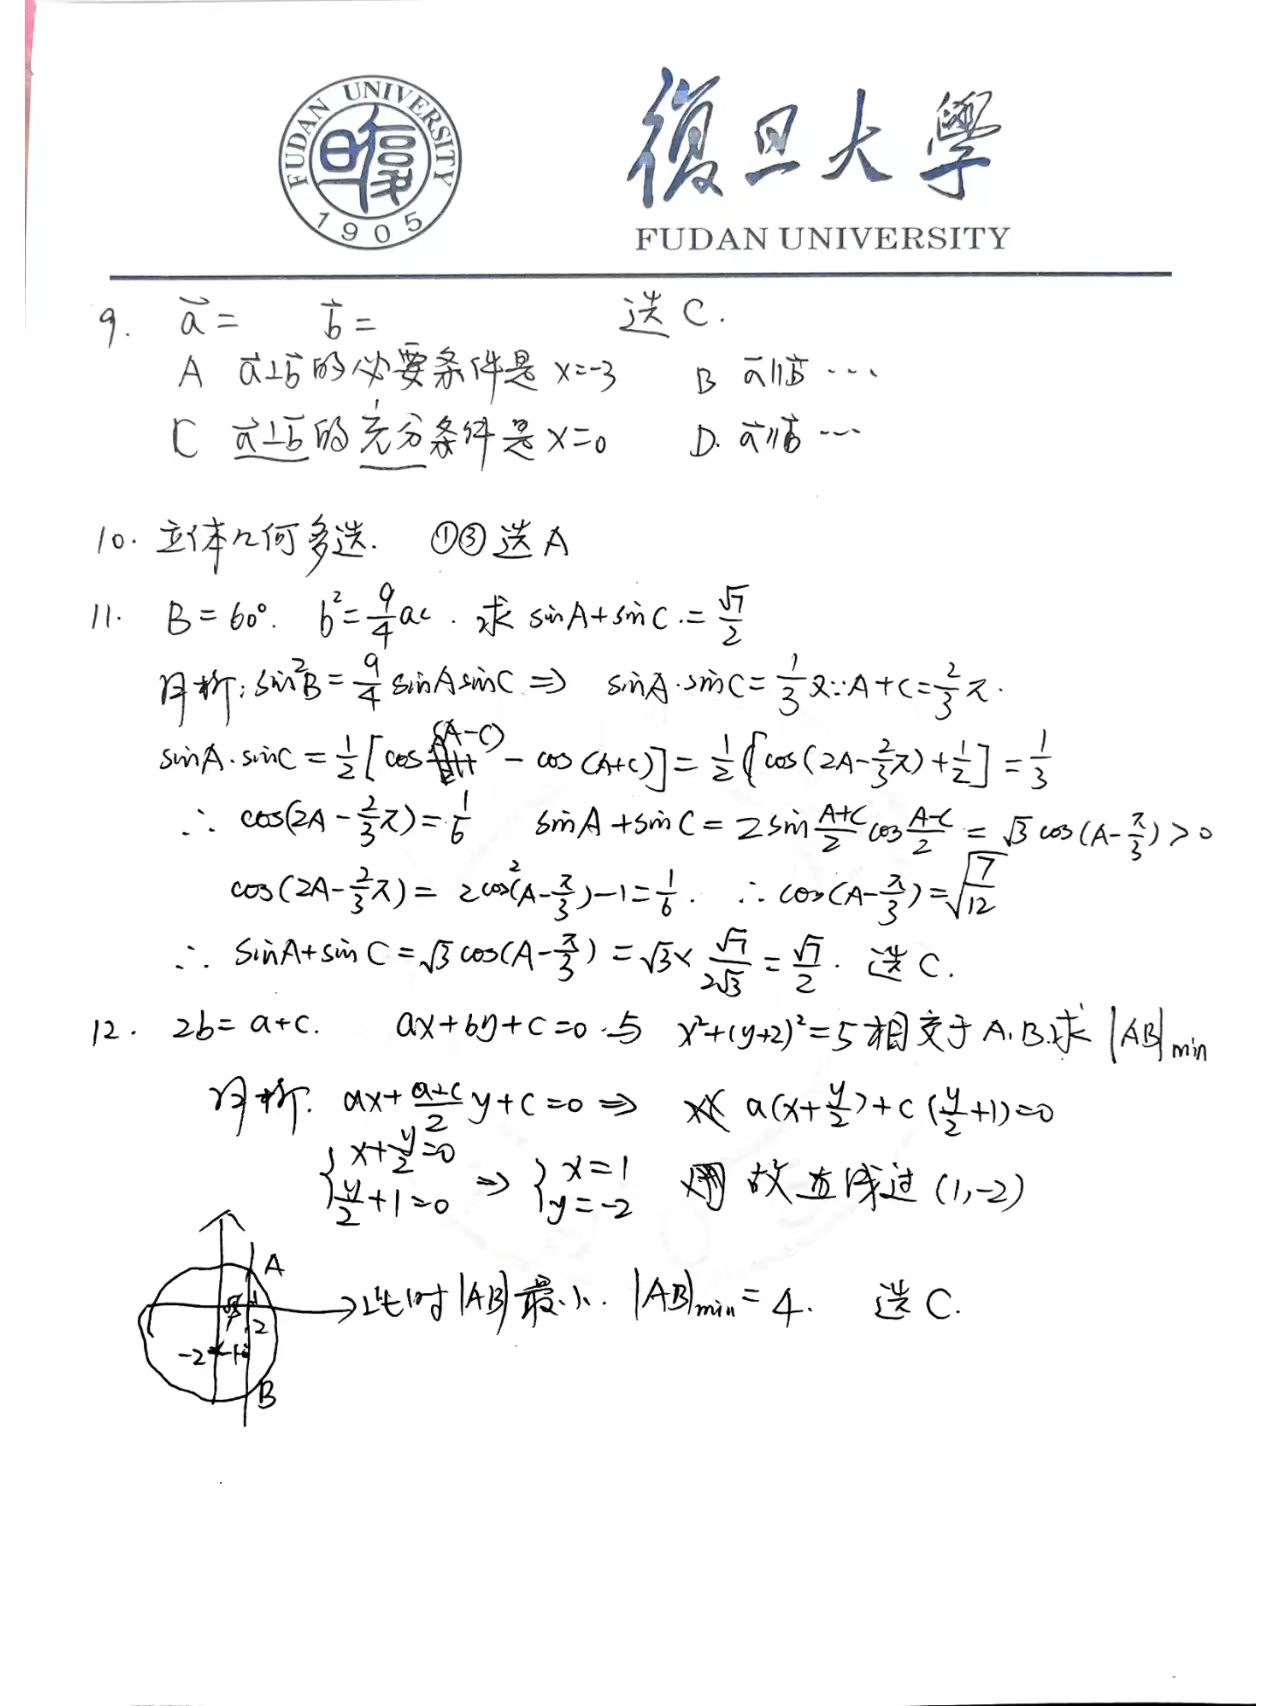 FUDAN UNIVERSITY
1905
復旦大學
FUDAN UNIVERSITY
9. a⃗= b⃗= 选C.
A a⃗⊥b⃗的必要条件是 x=-3 B a⃗∥b⃗ ···
C a⃗⊥b⃗的充分条件是 x=0 D. a⃗∥b⃗ ···
10. 立体几何多选. ①③选A
11. B=60°. b²=9/4ac. 求 sinA+sinC.=√7/2
解析: sin²B=9/4 sinAsinC ⇒ sinA·sinC=1/3 又∵A+C=2/3π.
sinA·sinC=1/2[cos(A-C)-cos(A+C)]=1/2[cos(2A-2/3π)+1/2]=1/3
∴ cos(2A-2/3π)=1/6 sinA+sinC=2sin(A+C)/2 cos(A-C)/2=√3cos(A-π/3)>0
cos(2A-2/3π)=2cos²(A-π/3)-1=1/6. ∴cos(A-π/3)=√(7/12)
∴ sinA+sinC=√3cos(A-π/3)=√3×√7/2√3=√7/2. 选C.
12. 2b=a+c. ax+by+c=0 与 x²+(y+2)²=5相交于A.B.求|AB|min
解析. ax+(a+c)/2 y+c=0 ⇒ a(x+y/2)+c(y/2+1)=0
{x+y/2=0 y/2+1=0 ⇒ {x=1 y=-2 故直线过(1,-2)
A
此时|AB|最小. |AB|min=4. 选C.
√5
1
2
-2
1
B